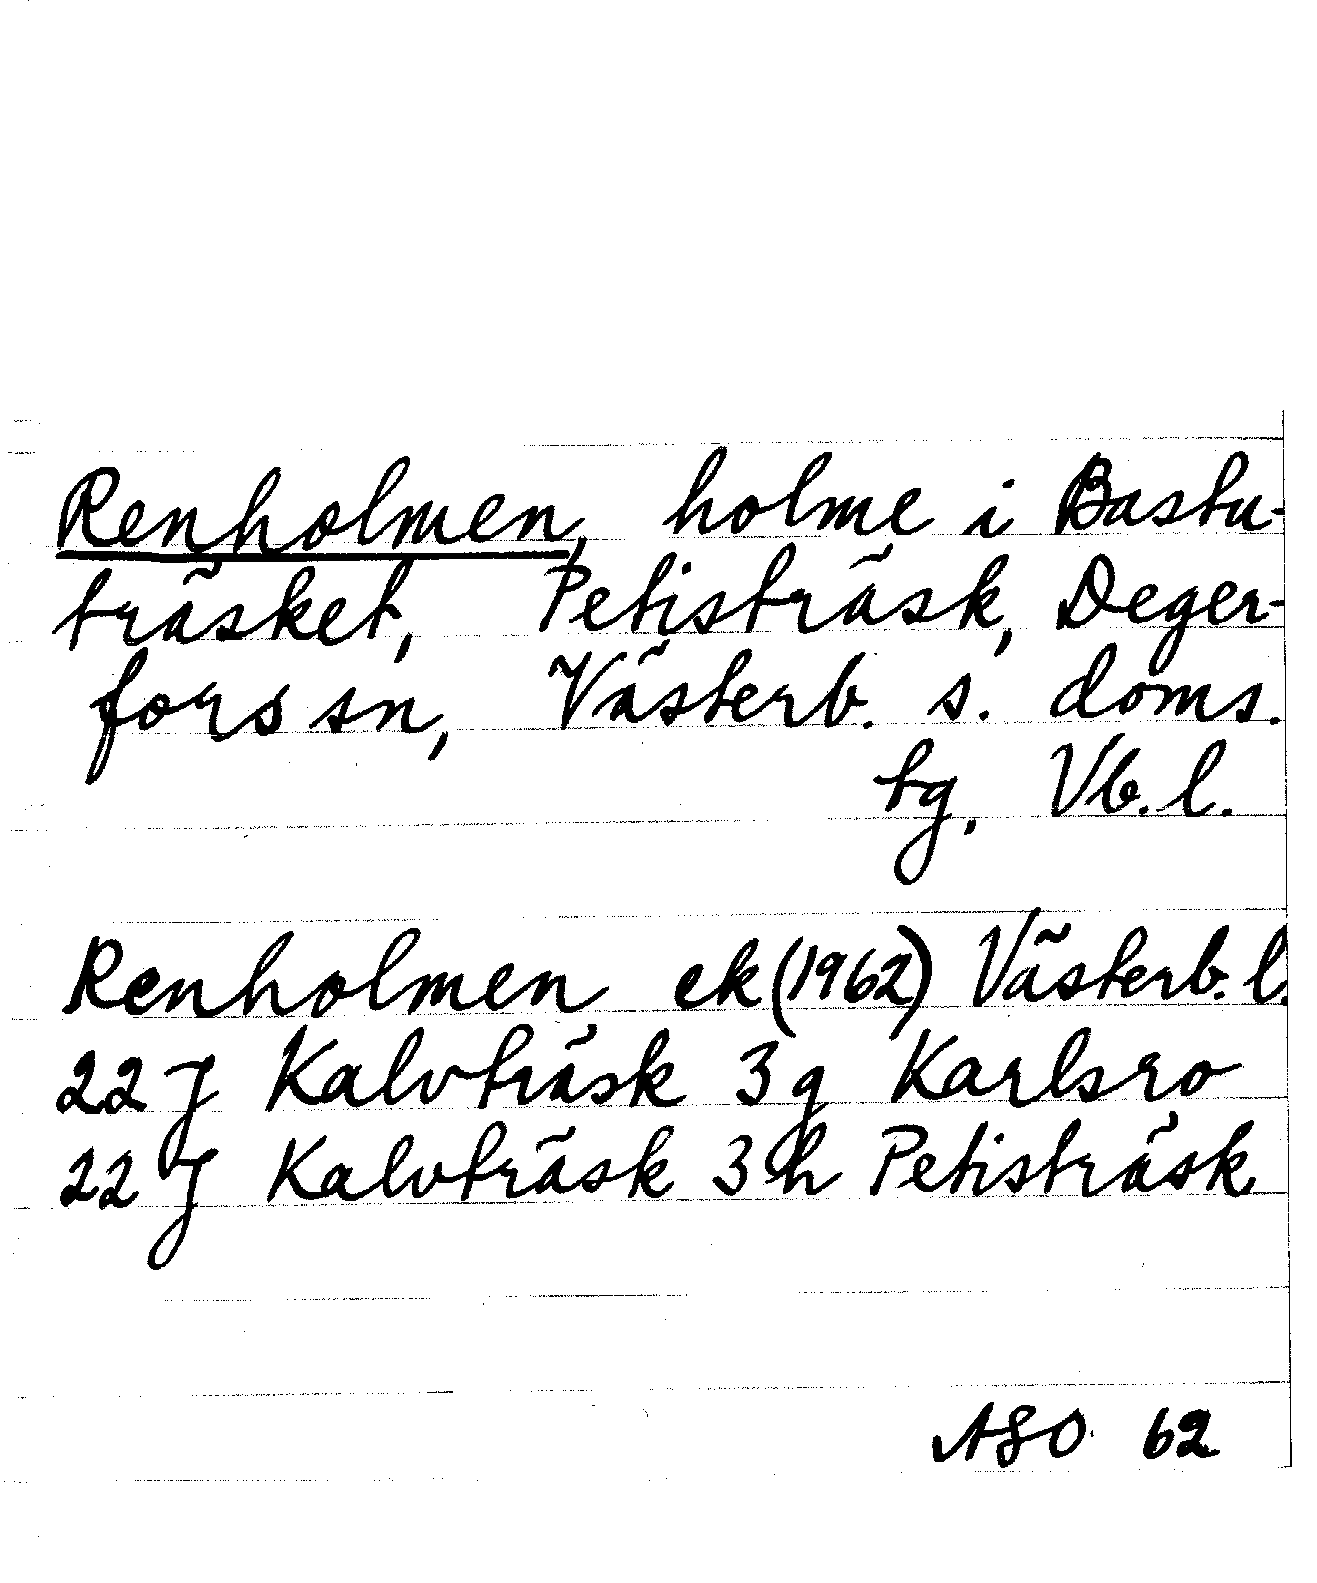 Renholmen, holme i Bastu-
träsket, Petisträsk, Deger-
fors sn, Västerb. s. doms.
tg, Vb. l.
Renholmen ek (1962) Västerb. l.
22 J Kalvträsk 3g Karlsro
22 J Kalvträsk 3h Petisträsk
ASO 62